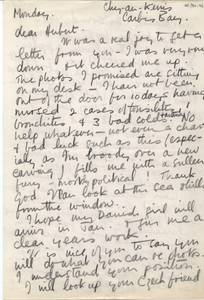 Monday.
Chy-an-Kerris
Carbis Bay.
dear Herbert.
It was a real joy to get a
letter from you – I was very
down & it cheered me up.
The photos I promised are sitting
on my desk – I have not been
out of the door for 10 days having
nursed 2 cases of tonsilitis
bronchitis & 3 bad colds. NO
help whatever – not even a char
& bad luck such as this (espec-
ially as I'm broody over a new
carving) fills me with a sullen
fury – mostly political! Thank
God I can look at the sea still
from the window.
I hope my Danish girl will
arrive in Jan. & give me a
clear years work.
It is nice of you to say you
will do what you can re photos.
I understand your position
I will look up your Czech friend